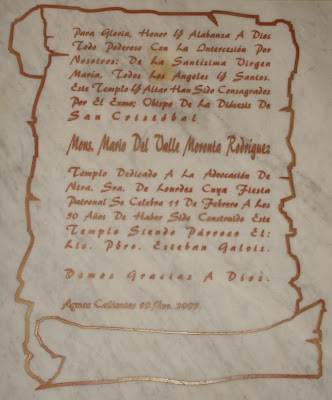 Para Gloria, Honor Y Alabanza A Dios
Todo Poderoso Con La Intercesión Por
Nosotros: De La Santísima Virgen
María, Todos Los Angeles Y Santos.
Este Templo Y Altar Han Sido Consagrados
Por El Exmo; Obispo De La Diócesis De
San Cristóbal.
Mons. Mario Del Valle Moronta Rodríguez
Templo Dedicado A La Advocación De
Ntra. Sra. De Lourdes Cuya Fiesta
Patronal Se Celebra 11 De Febrero A Los
50 Años De Haber Sido Construido Este
Templo Siendo Párroco El:
Lic. Pbro. Esteban Galvis.
Damos Gracias A Dios.
Aguas Calientes 2007